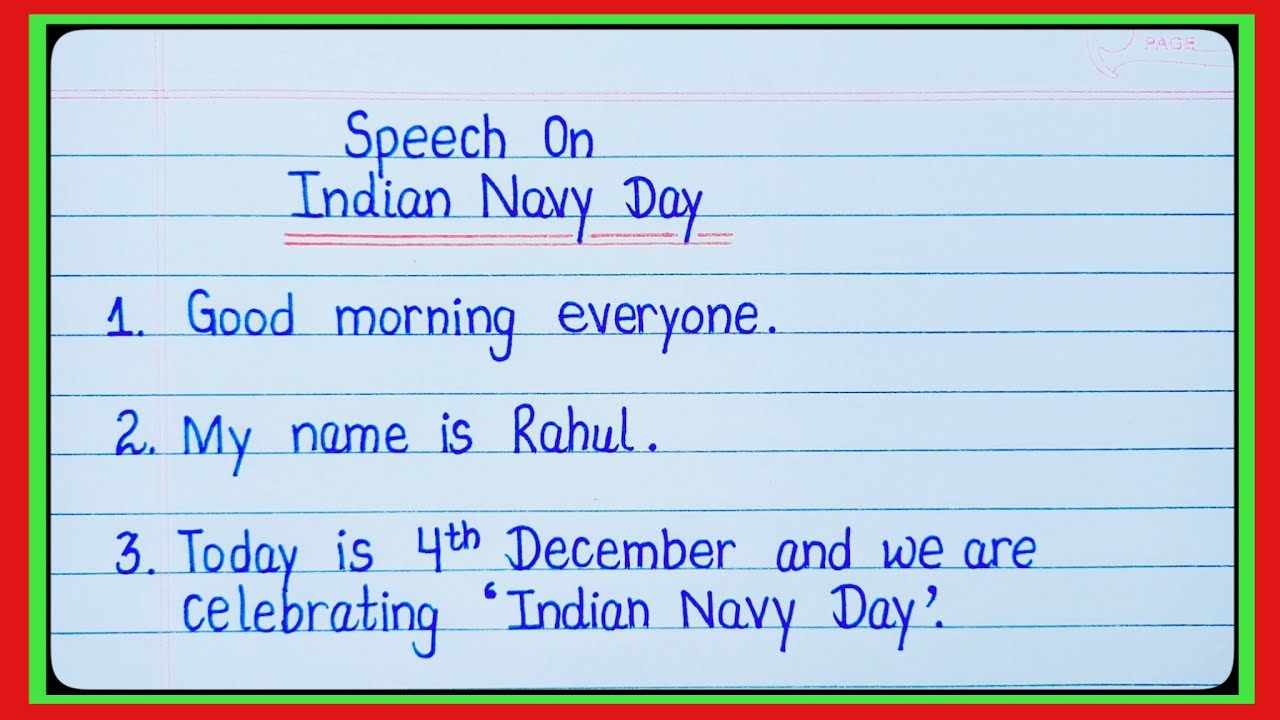 PAGE
Speech On
Indian Navy Day
1. Good morning everyone.
2. My name is Rahul.
3. Today is 4th December and we are
celebrating ‘Indian Navy Day’.